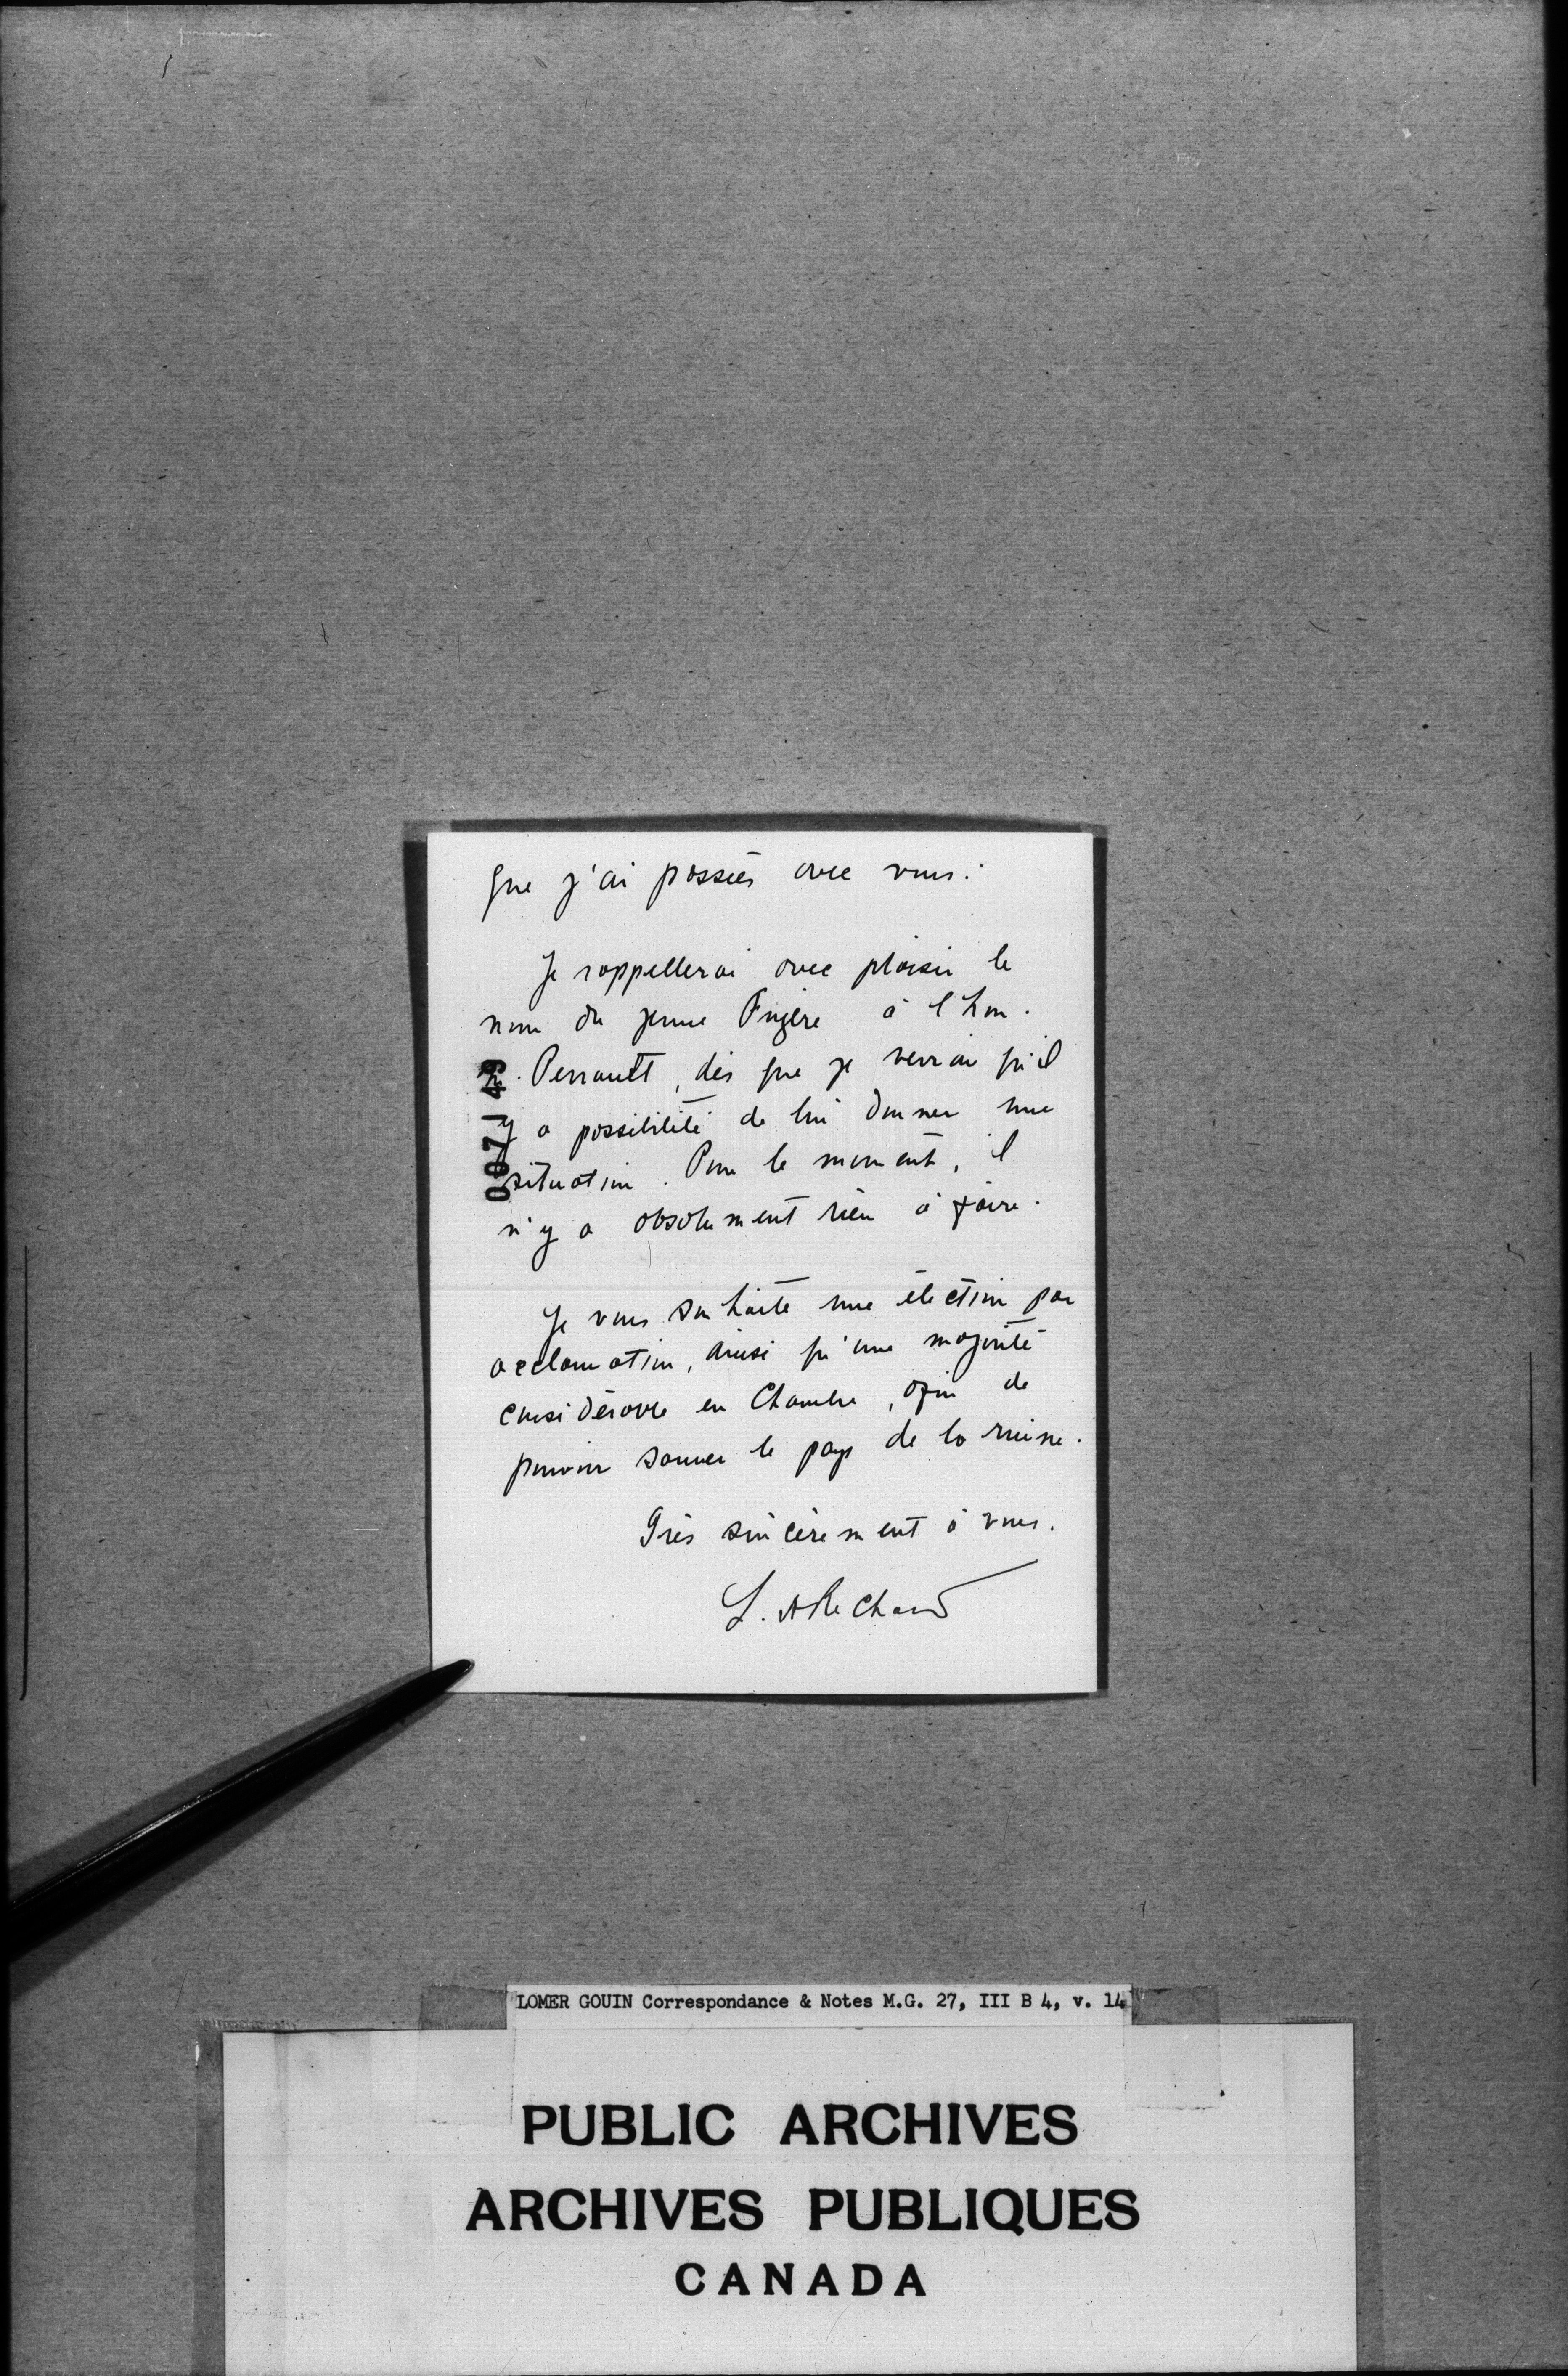 que j'ai passées avec vous.
Je rappellerai avec plaisir le
nom du jeune Fugère à l'hon.
M. Perrault, dès que je verrai qu'il
y a possibilité de lui donner une
situation. Pour le moment, il
n'y a absolument rien à faire.
Je vous souhaite une élection par
acclamation, ainsi qu'une majorité
considérable en Chambre, afin de
pouvoir sauver le pays de la ruine.
Très sincèrement à vous.
L. A Richard
007149
LOMER GOUIN Correspondance & Notes M.G. 27, III B 4, v. 14
PUBLIC ARCHIVES
ARCHIVES PUBLIQUES
CANADA